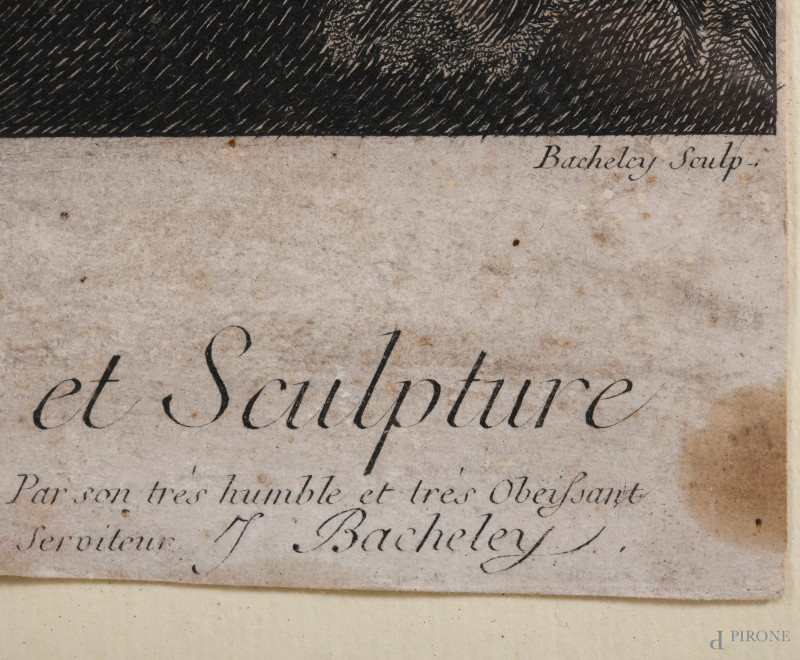 Bacheley Sculp.
et Sculpture
Par son trés humble et trés Obeiſsant
Serviteur J Bacheley.
PIRONE